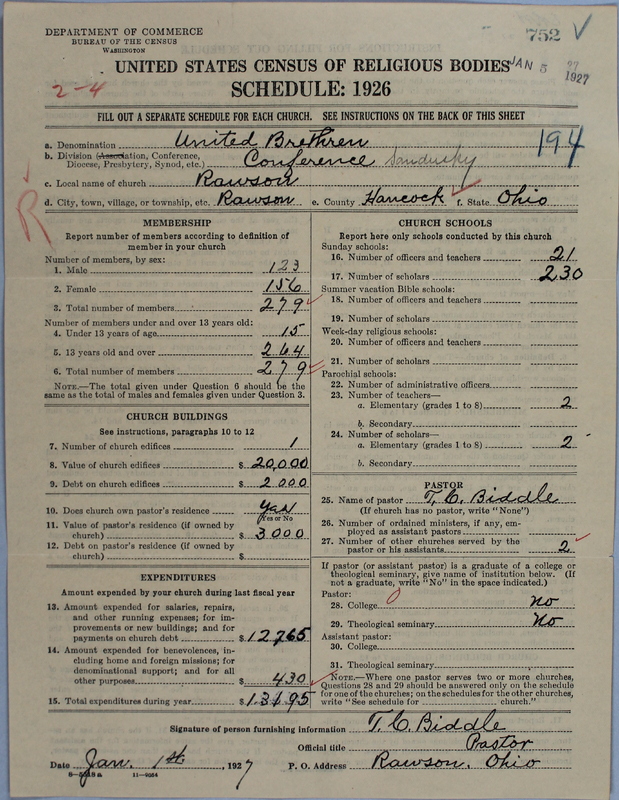 DEPARTMENT OF COMMERCE
BUREAU OF THE CENSUS
WASHINGTON
752 V
JAN 5 1927
27
UNITED STATES CENSUS OF RELIGIOUS BODIES
2-4
SCHEDULE: 1926
FILL OUT A SEPARATE SCHEDULE FOR EACH CHURCH. SEE INSTRUCTIONS ON THE BACK OF THIS SHEET
a. Denomination United Brethren
194
b. Division (Association, Conference, Diocese, Presbytery, Synod, etc.) Conference Sandusky
c. Local name of church Rawson
d. City, town, village, or township, etc. Rawson e. County Hancock f. State Ohio
R
MEMBERSHIP
Report number of members according to definition of
member in your church
Number of members, by sex:
1. Male 123
2. Female 156
3. Total number of members 279
Number of members under and over 13 years old:
4. Under 13 years of age 15
5. 13 years old and over 264
6. Total number of members 279
NOTE.—The total given under Question 6 should be the
same as the total of males and females given under Question 3.
CHURCH BUILDINGS
See instructions, paragraphs 10 to 12
7. Number of church edifices 1
8. Value of church edifices $ 20,000
9. Debt on church edifices $ 2000
10. Does church own pastor's residence Yes
(Yes or No)
11. Value of pastor's residence (if owned by
church) $ 3000
12. Debt on pastor's residence (if owned by
church) $
EXPENDITURES
Amount expended by your church during last fiscal year
13. Amount expended for salaries, repairs,
and other running expenses; for im-
provements or new buildings; and for
payments on church debt $ 12,765
14. Amount expended for benevolences, in-
cluding home and foreign missions; for
denominational support; and for all
other purposes $ 430
15. Total expenditures during year $ 13195
CHURCH SCHOOLS
Report here only schools conducted by this church
Sunday schools:
16. Number of officers and teachers 21
17. Number of scholars 230
Summer vacation Bible schools:
18. Number of officers and teachers
19. Number of scholars
Week-day religious schools:
20. Number of officers and teachers
21. Number of scholars
Parochial schools:
22. Number of administrative officers
23. Number of teachers—
a. Elementary (grades 1 to 8) 2
b. Secondary
24. Number of scholars—
a. Elementary (grades 1 to 8) 2
b. Secondary
PASTOR
25. Name of pastor T. C. Biddle
(If church has no pastor, write "None")
26. Number of ordained ministers, if any, em-
ployed as assistant pastors
27. Number of other churches served by the
pastor or his assistants 2
If pastor (or assistant pastor) is a graduate of a college or
theological seminary, give name of institution below. (If
not a graduate, write "No" in the space indicated.)
Pastor:
28. College 0 No
29. Theological seminary No
Assistant pastor:
30. College
31. Theological seminary
NOTE.—Where one pastor serves two or more churches,
Questions 28 and 29 should be answered only on the schedule
for one of the churches; on the schedules for the other churches,
write "See schedule for church."
Signature of person furnishing information T. C. Biddle
Official title Pastor
Date Jan. 1st, 1927 P. O. Address Rawson, Ohio
11—9664